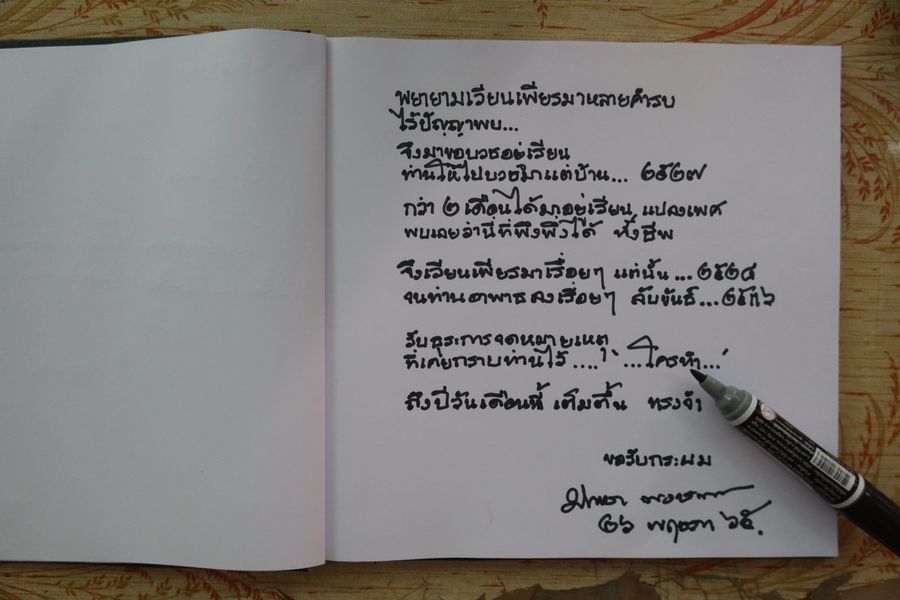 พยายามเวียนเพียรมาหลายคำรบ
ไร้ปัญญาพบ...
จึงมาขอบวชอยู่เรียน
ท่านให้ไปบวชฝึกแต่บ้าน... ๒๕๒๗
กว่า ๒ เดือนได้มาอยู่เรียน แปลงเพศ
พบเลยว่านี่ที่พึงพึ่งได้ ทั้งชีพ
จึงเวียนเพียรมาเรื่อยๆ แต่นั้น... ๒๕๒๔
จนท่านอาพาธลงเรื่อยๆ ลับขันธ์... ๒๕๓๖
รับธุระการจดหมายเหตุ
ที่เคยกราบท่านไว้ .... '...ใครทำ...'
ถึงปีวันเดือนนี้ เต็มตื้น ทรงจำ
ขอรับกระผม
๒๖ พฤษภา ๖๕.